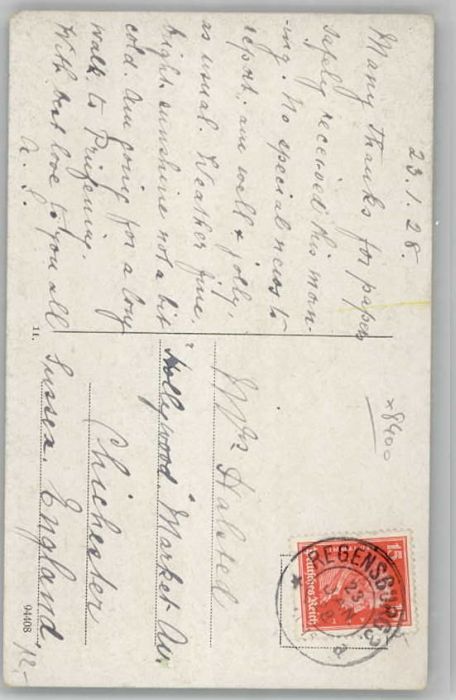 23.1.28.
Many thanks for papers
safely received this morn-
-ing. No special news to
report, am well & jolly,
as usual. Weather fine,
bright sunshine not a bit
cold. Am going for a long
walk to Prüfening.
With best love to you all
Mrs Halsted
"Hollywood" Market Av.
Chichester
Sussex. England.
11.
94408
12-
x8400
REGENSBURG
23
Deutsches Reich
15